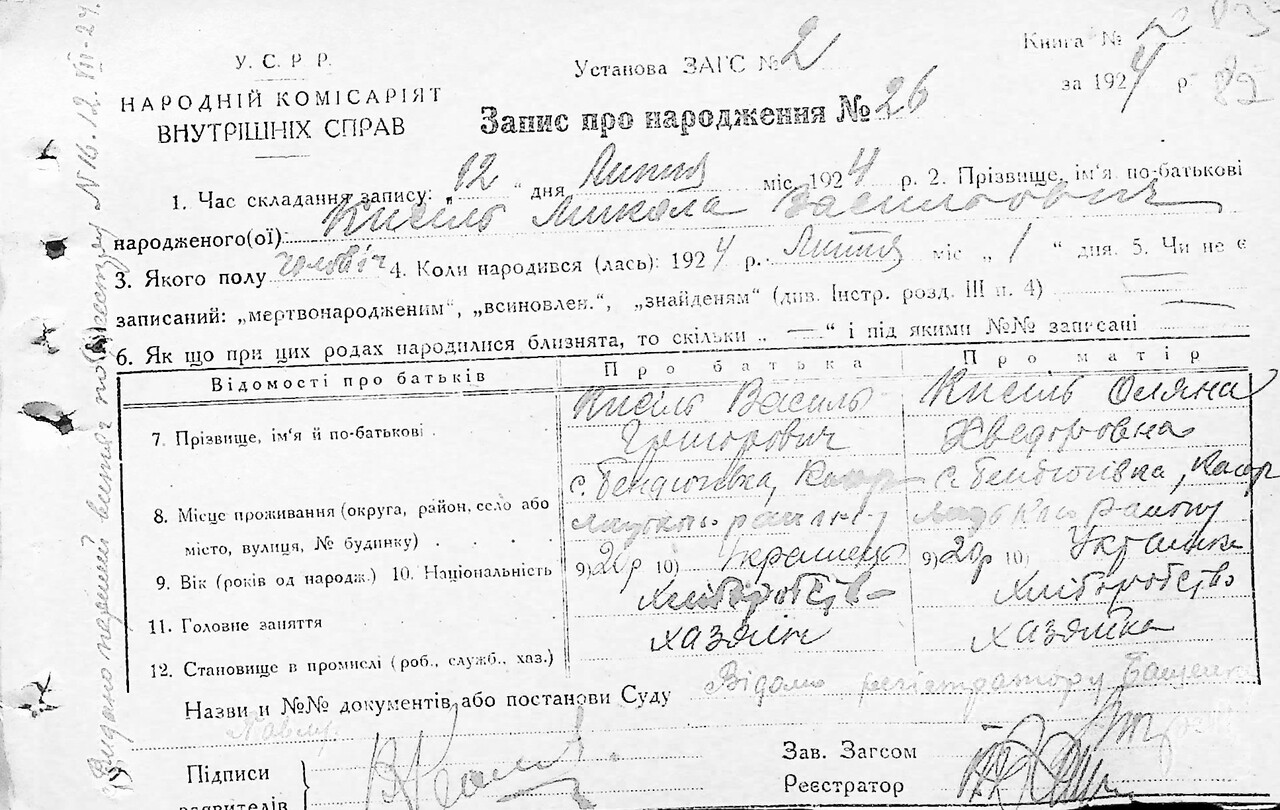 У. С. Р. Р.
НАРОДНІЙ КОМІСАРІЯТ
ВНУТРІШНІХ СПРАВ
Установа ЗАГС № 2
Книга №
за 1924 р.
83
Запис про народження № 26
1. Час складання запису: „12“ дня Липня міс. 1924 р. 2. Прізвище, ім'я по-батькові
народженого(ої): Кисіль Микола Васильович
3. Якого полу чоловіч 4. Коли народився (лась): 1924 р. Липня міс „1“ дня. 5. Чи не є
записаний: „мертвонародженим“, „всиновлен.“, „знайденям“ (див. Інстр. розд. III п. 4) —
6. Як що при цих родах народилися близнята, то скільки „—“ і під якими №№ записані —
Відомості про батьків
Про батька
Про матір
7. Прізвище, ім'я й по-батькові
Кисіль Василь
Григорович
Кисіль Оляна
Хведоровна
8. Місце проживання (округа, район, село або
місто, вулиця, № будинку)
с. Бендюгівка,
району
с. Бендюгівка,
Району
9. Вік (років од народж.) 10. Національність
9) 20р 10) Українець
9) 20р 10) Українка
11. Головне заняття
Хліборобств
Хліборобство
12. Становище в промислі (роб., служб., хаз.)
хазяїн
хазяйка
Назви и №№ документів або постанови Суду Відомо регістратору
Павлу.
Підписи
заявителів
Зав. Загсом
Реєстратор
Видано перший витяг по реєстру N 16. 12. VII-24.